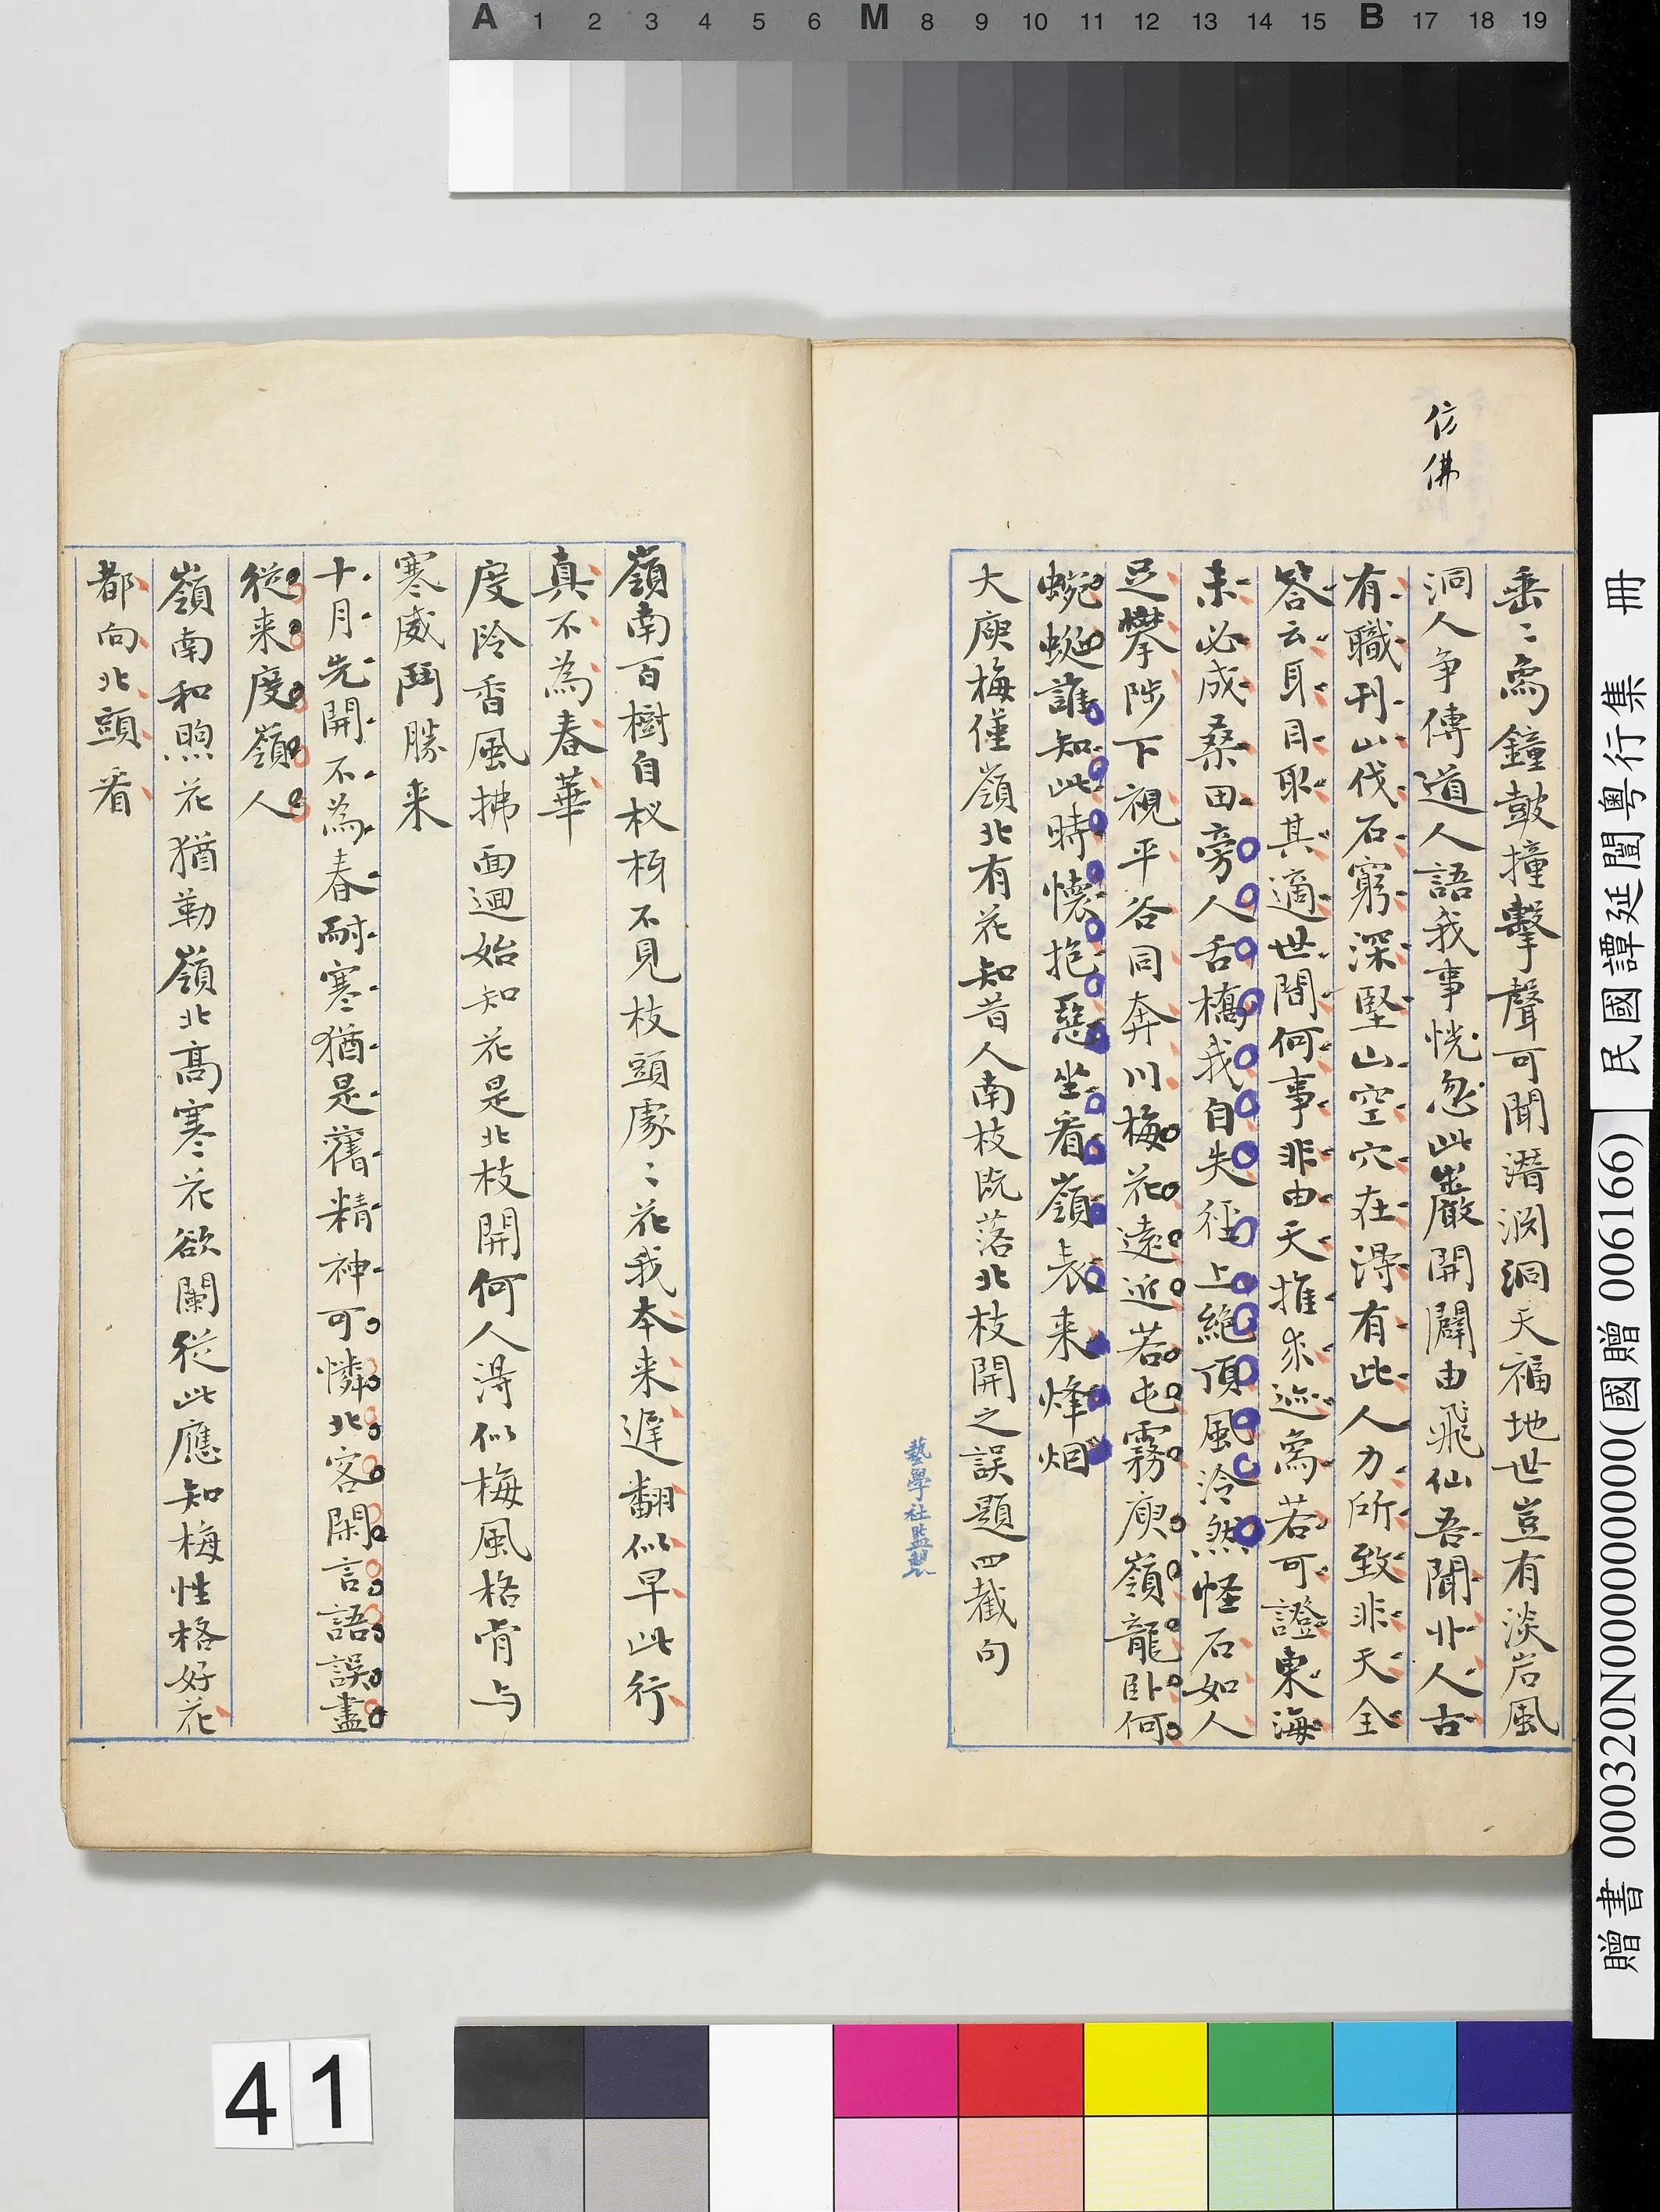 A 1 2 3 4 5 6 M 8 9 10 11 12 13 14 15 B 17 18 19
仿佛
垂〻為鐘鼓撞擊聲可聞潛淵洞天福地世豈有淡岩風
洞人爭傳道人語我事恍忽此巖開闢由飛仙吾聞北人古
有職刊山伐石窮深堅山空穴在淂有此人力所致非天全
答云耳目取其適世間何事非由天推求迹為若可證東海
未必成桑田旁人舌撟我自失徑上絕頂風泠然怪石如人
足攀陟下視平谷同奔川梅花遠近若屯霧庾嶺龍臥何
蜿蜒誰知此時懷抱惡坐看嶺表来烽烟
大庾梅僅嶺北有花知昔人南枝既落北枝開之誤題四截句
藝學社監製
嶺南百樹自杈枒不見枝頭處〻花我本来遲翻似早此行
真不為春華
度阾香風拂面迴始知花是北枝開何人淂似梅風格肯与
寒威鬥勝来
十月先開不為春耐寒猶是舊精神可憐北客閑言語誤盡
從来度嶺人
嶺南和煦花猶勒嶺北高寒花欲闌從此應知梅性格好花
都向北頭看
贈書 000320N000000000(國贈 006166) 民國譚延闓粵行集 冊
41